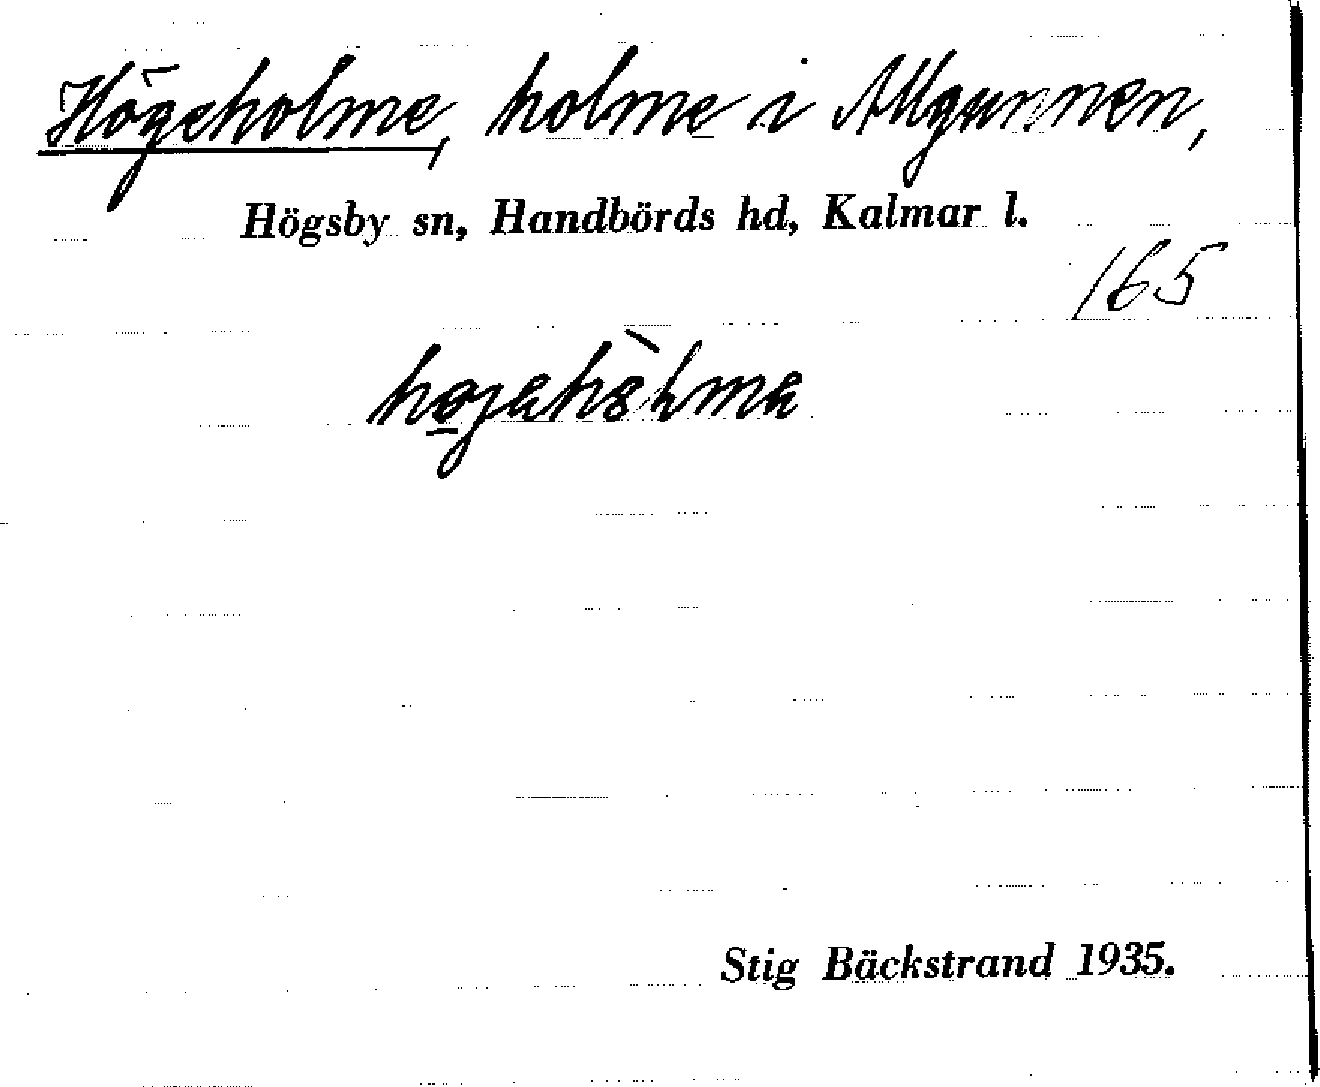 Högeholme, holme i Allgunnen,
Högsby sn, Handbörds hd, Kalmar l.
165
Stig Bäckstrand 1935.